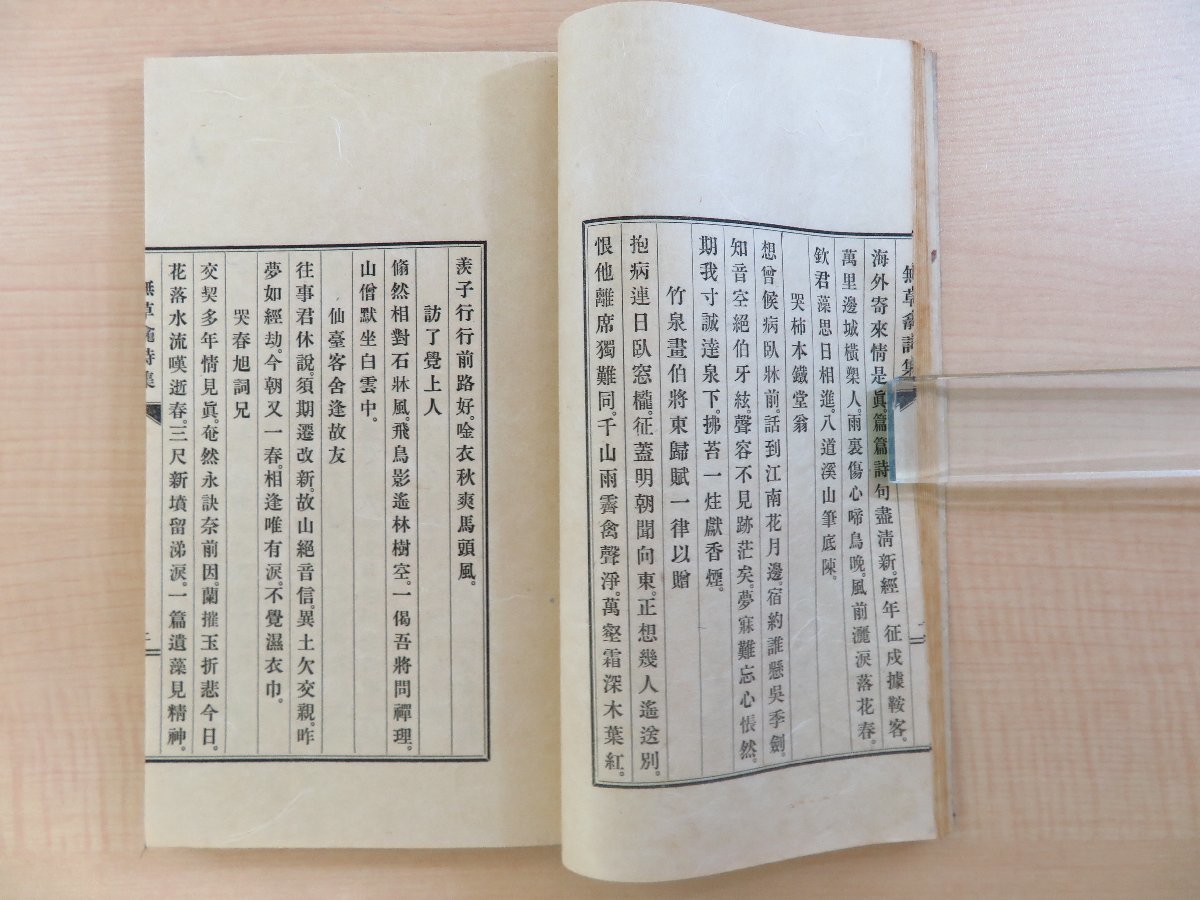 海外寄來情是眞。篇篇詩句盡淸新。經年征戍據鞍客。
萬里邊城橫槊人。雨裏傷心啼鳥晚。風前灑淚落花春。
欽君藻思日相進。八道溪山筆底陳。
哭柿本鐵堂翁
想曾候病臥牀前。話到江南花月邊。宿約誰懸吳季劍。
知音空絕伯牙絃。聲容不見跡茫矣。夢寐難忘心悵然。
期我寸誠達泉下。拂苔一炷獻香煙。
竹泉畫伯將東歸賦一律以贈
抱病連日臥窓櫳。征蓋明朝聞向東。正想幾人遙送別。
恨他離席獨難同。千山雨霽禽聲淨。萬壑霜深木葉紅。
羨子行行前路好。唫衣秋爽馬頭風。
訪了覺上人
翛然相對石牀風。飛鳥影遙林樹空。一偈吾將問禪理。
山僧默坐白雲中。
仙臺客舍逢故友
往事君休說。須期遷改新。故山絕音信。異土欠交親。昨
夢如經劫。今朝又一春。相逢唯有淚。不覺濕衣巾。
哭春旭詞兄
交契多年情見眞。奄然永訣奈前因。蘭摧玉折悲今日。
花落水流嘆逝春。三尺新墳留涕淚。一篇遺藻見精神。